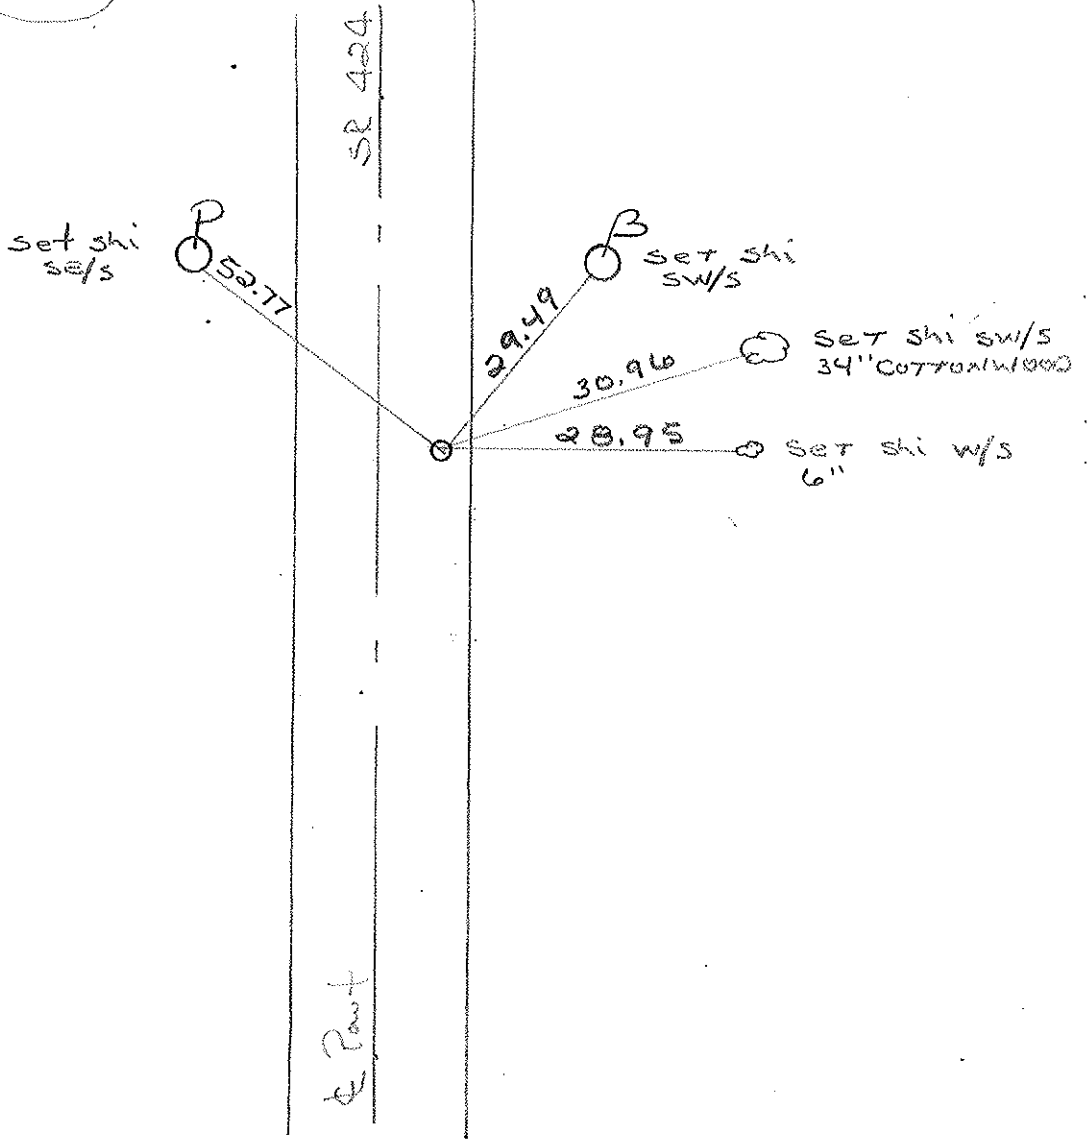 SR 424
P
set shi
SE/S
52.77
B
set shi
SW/S
29.49
set shi sw/s
34" COTTONWOOD
30.96
28.95
set shi w/s
6"
℄ Pavt